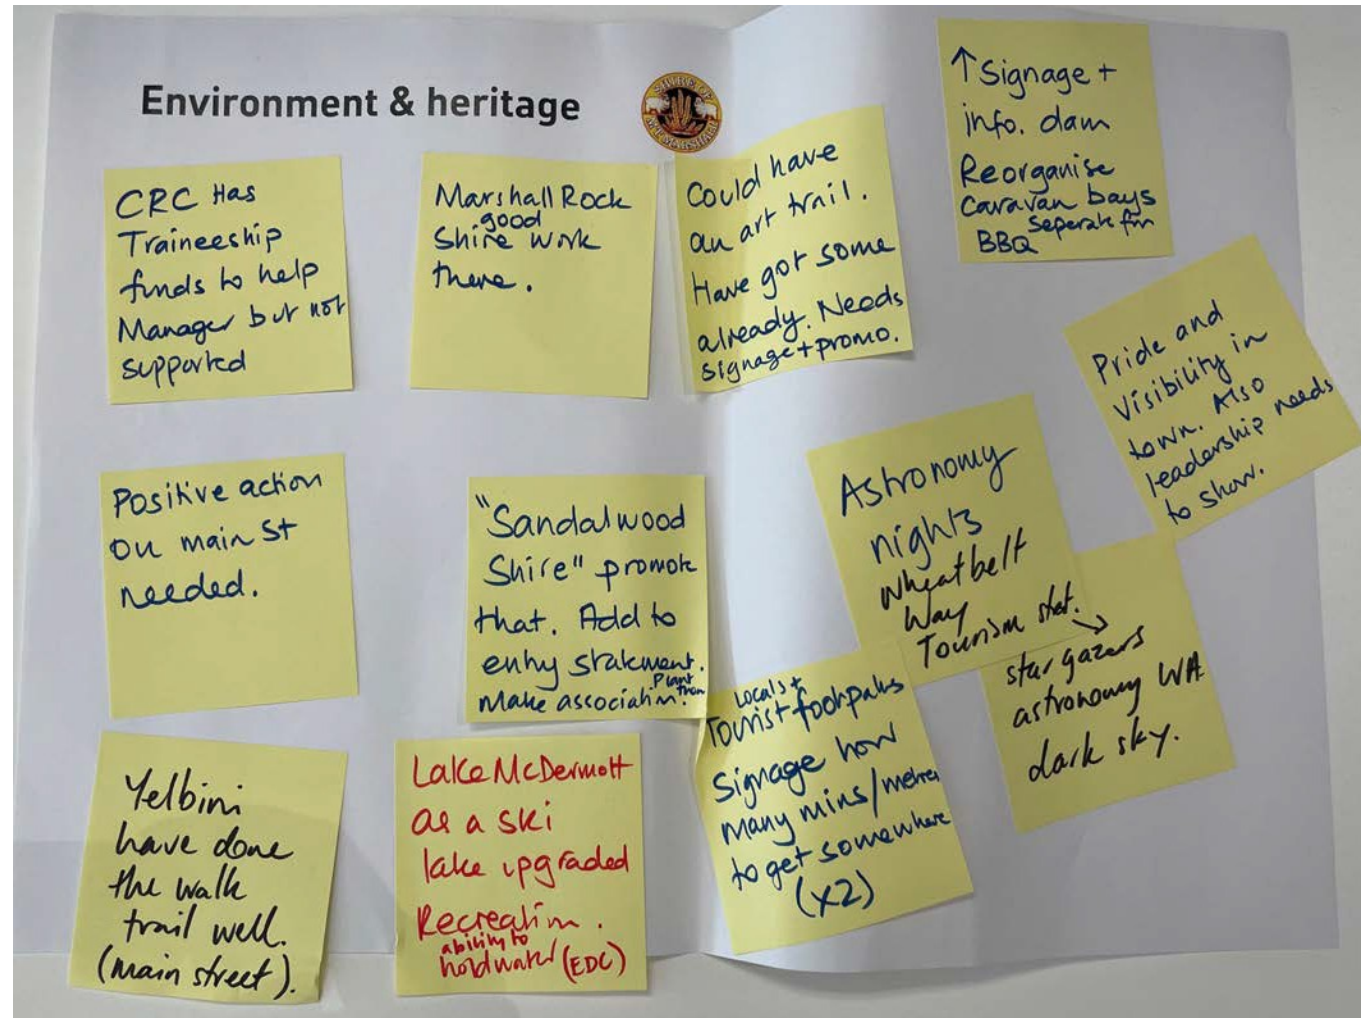 Environment & heritage
SHIRE OF
MT. MARSHALL
CRC Has
Traineeship
funds to help
Manager but not
supported
Marshall Rock
good
Shire work
there.
Could have
an art trail.
Have got some
already. Needs
signage + promo.
↑ Signage +
info. dam
Reorganise
caravan bays
seperate frm
BBQ
Pride and
visibility in
town. Also
leadership needs
to show.
Positive action
on main St
needed.
"Sandalwood
Shire" promote
that. Add to
entry statement.
Plant
Make association. them
Astronomy
nights
Wheatbelt
Way
Tourism stat.
→
star gazers
astronomy WA
dark sky.
Yelbini
have done
the walk
trail well.
(main street).
Lake McDermott
as a ski
lake upgraded
Recreation.
ability to
hold water (EDC)
Locals +
Tourist footpaths
Signage how
many mins/metres
to get somewhere
(x2)